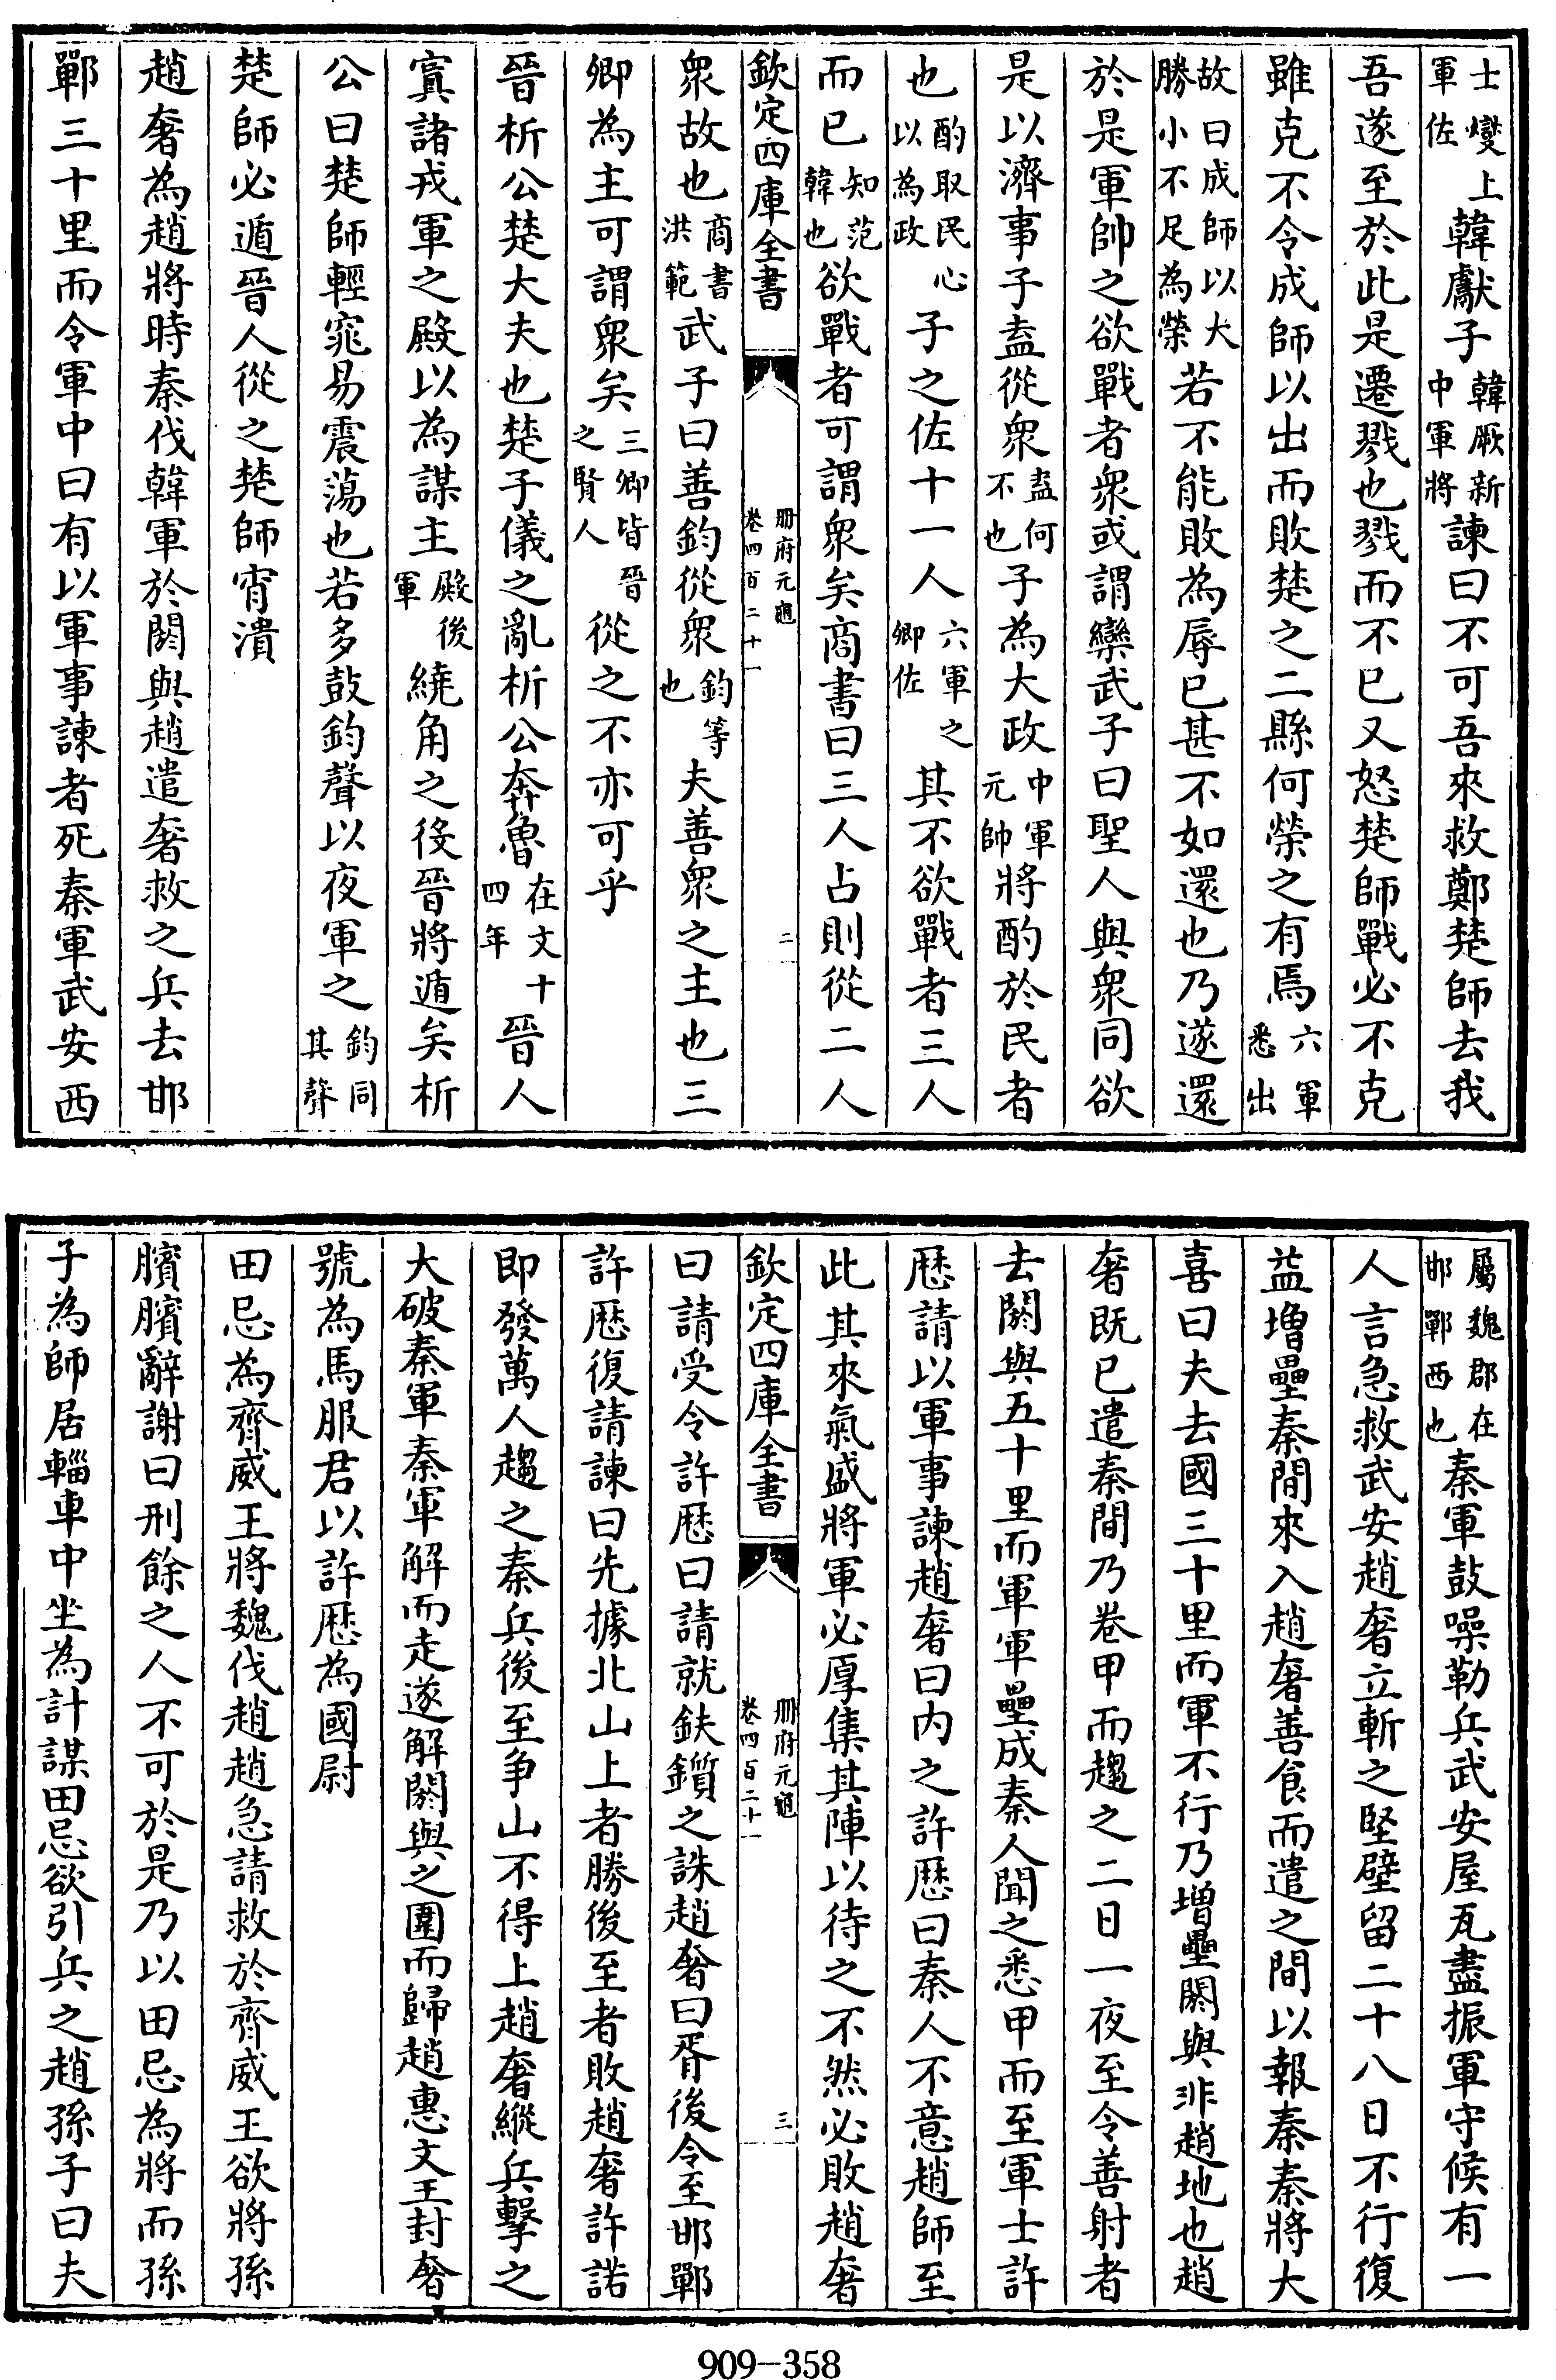 士燮上軍佐韓獻子韓厥新中軍將諫曰不可吾來救鄭楚師去我
吾遂至於此是遷戮也戮而不已又怒楚師戰必不克
雖克不令成師以出而敗楚之二縣何榮之有焉六軍悉出
故曰成師以大勝小不足為榮若不能敗為辱已甚不如還也乃遂還
於是軍帥之欲戰者衆或謂欒武子曰聖人與衆同欲
是以濟事子盍從衆盍何不也子為大政中軍元帥將酌於民者
也酌取民心以為政子之佐十一人六軍之卿佐其不欲戰者三人
而已知范韓也欲戰者可謂衆矣商書曰三人占則從二人
欽定四庫全書
冊府元龜
卷四百二十一
二
衆故也商書洪範武子曰善鈞從衆鈞等也夫善衆之主也三
卿為主可謂衆矣三卿皆晉之賢人從之不亦可乎
晉析公楚大夫也楚子儀之亂析公奔魯在文十四年晉人
寘諸戎軍之殿以為謀主殿後軍繞角之役晉將遁矣析
公曰楚師輕窕易震蕩也若多鼓鈞聲以夜軍之鈞同其聲
楚師必遁晉人從之楚師宵潰
趙奢為趙將時秦伐韓軍於閼與趙遣奢救之兵去邯
鄲三十里而令軍中曰有以軍事諫者死秦軍武安西
屬魏郡在邯鄲西也秦軍鼓噪勒兵武安屋瓦盡振軍守候有一
人言急救武安趙奢立斬之堅壁留二十八日不行復
益增壘秦間來入趙奢善食而遣之間以報秦秦將大
喜曰夫去國三十里而軍不行乃增壘閼與非趙地也趙
奢既已遣秦間乃卷甲而趨之二日一夜至令善射者
去閼與五十里而軍軍壘成秦人聞之悉甲而至軍士許
厯請以軍事諫趙奢曰内之許厯曰秦人不意趙師至
此其來氣盛將軍必厚集其陣以待之不然必敗趙奢
欽定四庫全書
冊府元龜
卷四百二十一
三
曰請受令許厯曰請就鈇鑕之誅趙奢曰胥後令至邯鄲
許厯復請諫曰先據北山上者勝後至者敗趙奢許諾
即發萬人趨之秦兵後至爭山不得上趙奢縱兵擊之
大破秦軍秦軍解而走遂解閼與之圍而歸趙惠文王封奢
號為馬服君以許厯為國尉
田忌為齊威王將魏伐趙趙急請救於齊威王欲將孫
臏臏辭謝曰刑餘之人不可於是乃以田忌為將而孫
子為師居輜車中坐為計謀田忌欲引兵之趙孫子曰夫
909-358